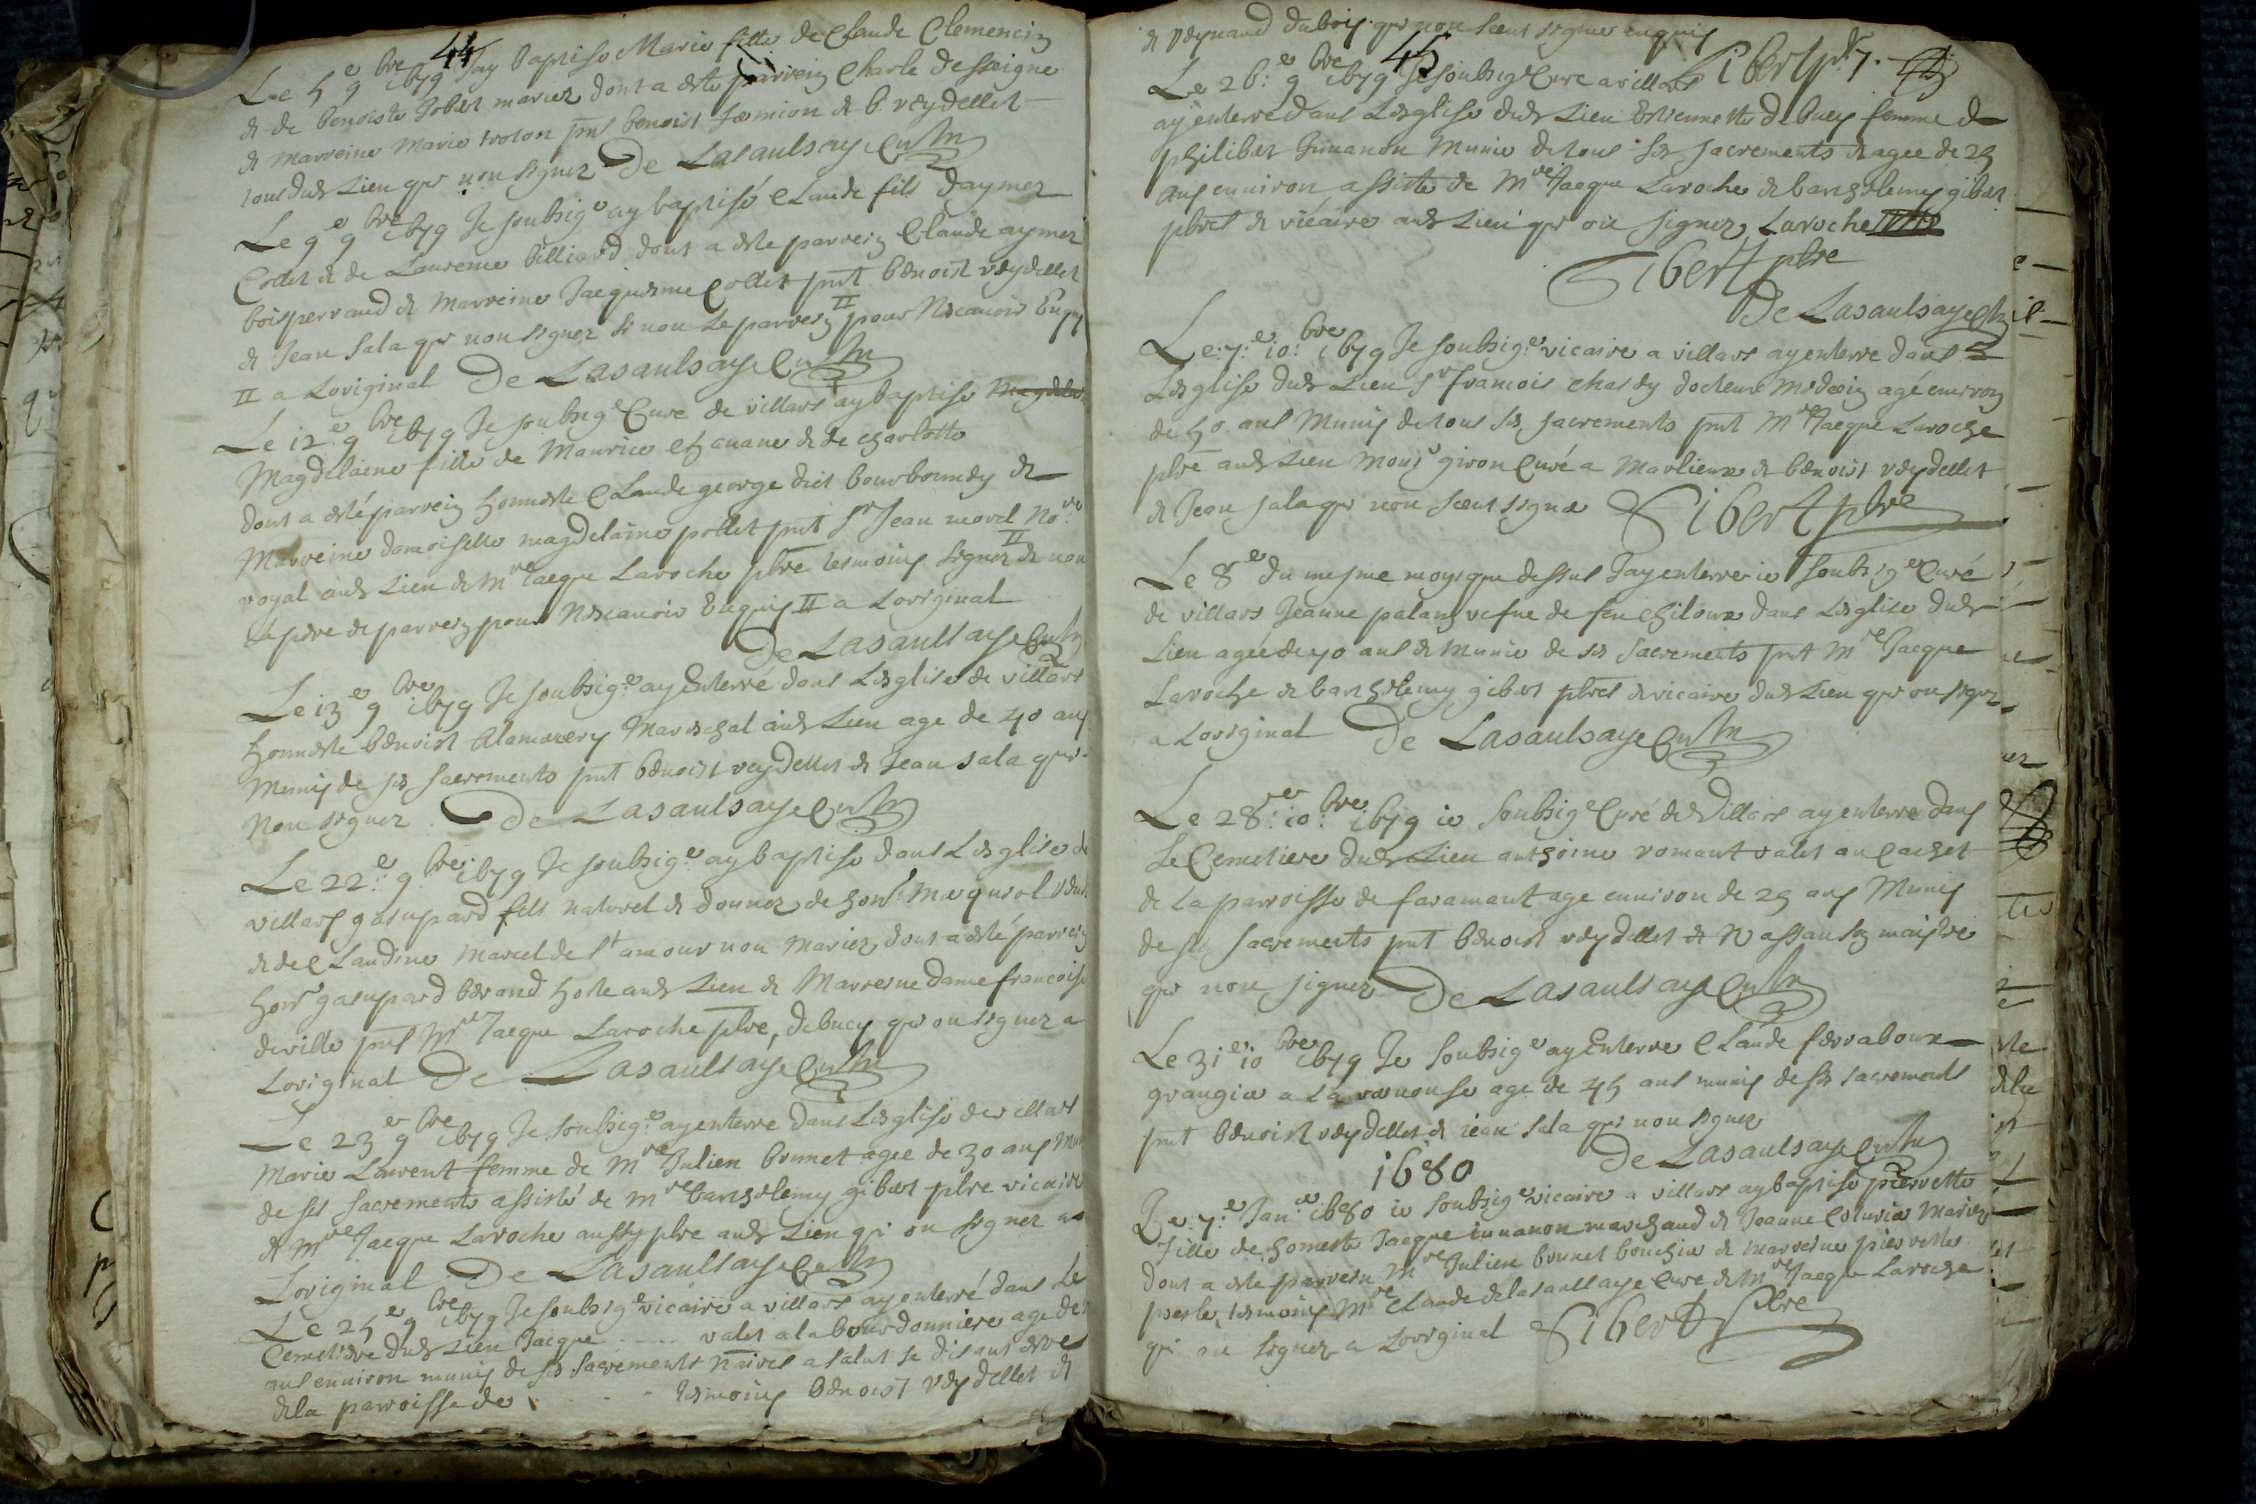 44
Le 5e 9bre 1679 Jay baptisé Marie fille de Claude Clemencin
& de benoiste Jobert mariez dont a esté parrein Charle
& marreine Marie troton pnt benoist & b. veydellet
tous dud Lieu qui non signez De Lasaulsaye Curé
Le 9e 9bre 1679 Je soubsigé ay baptisé Claude fils daymez
Collet & de Laurence billiard dont a esté parrein Claude aymez
boisperraud & marreine Jacquesme Collet pnt benoist veydellet
& Jean Sala qui non signez & non Le parrein II pour Nescavoir Enquis
II a Loriginal De Lasaulsaye Curé
Le 12e 9bre 1679 Je soubsigé Curé de villars ay baptisé
Magdelaine fille de Maurice Chanane & de Charlotte
dont a esté parrein honneste Claude george dict bourbonnois &
Marreine damoiselle magdelaine pollet pnt Sr Jean morel Nore
royal aud Lieu & Mre Jacque Laroche pbre tesmoins signez II & non
Le pere & parrein pour Nescavoir Enquis II a Loriginal
De Lasaulsaye Curé
Le 13e 9bre 1679 Je soubsigé ay Enterré dans Lesglise de villars
honneste benoist Alamarery Mareschal aud Lieu age de 40 ans
Munis de ses sacrements pnt benoist veydellet & Jean Sala qui
Non signez De Lasaulsaye Curé
Le 22e 9bre 1679 Je soubsigé ay baptisé dans Lesglise de
villars gasupard fils naturel & donnez de
& de Claudine Marcel de St amour non Mariez dont a esté parrein
honr gasupard berand hoste aud Lieu & Marreine dame francoise
deville pnts Mre Jacque Laroche pbre, debuey qui on signez a
Loriginal De Lasaulsaye Curé
Le 23e 9bre 1679 Je soubsigé ay enterré dans Lesglise de villars
Marie Laurent femme de Mre Julien brunet agee de 30 ans
de ses sacrements assisté de Mre barthelemy gibert pbre vicaire
& Mre Jacque Laroche aussy pbre aud Lieu qui on signez a
Loriginal De Lasaulsaye Curé
Le 25e 9bre 1679 Je soubsigé vicaire a villars ay enterré dans Le
Cemetiere dud Lieu Jacque ..... valet a la bourdonniere age de
ans environ munis de ses sacrements se disant estre
de la parroisse de ..... tesmoins benoist veydellet &
& Reynaud dubois qui non sceus signer enquis
45
Gibert pbre
Le 26e 9bre 1679 Je soubsigé Curé a villars
ay enterré dans Lesglise dud Lieu Estiennette debuey femme de
philibert Junanon Munie de tous ses sacrements & agee de 25
ans environ assisté de Mre Jacque Laroche & barthelemy gibert
pbres & vicaire aud Lieu qui on signez Laroche
Gibert pbre
De Lasaulsaye Curé
Le: 7e: 10bre 1679 Je soubsigé vicaire a villars ay enterré dans
Lesglise dud Lieu Sr francois chardy docteur Medecin agé environ
de 50 ans Munis de tous ses sacrements pnt Mre Jacque Laroche
pbre aud Lieu Monsr giron Curé a Marlieux & benoist veydellet
& Jean Sala qui non sceus signer Gibert pbre
Le 8e du mesme moys que dessus Jay enterré ie soubsigé Curé
de villars Jeanne palan vefve de feu Chiloux dans Lesglise dud
Lieu agée de 70 ans & Munie de ses Sacrements pnt Mre Jacque
Laroche & barthelemy gibert pbres & vicaire dud Lieu qui on signez
a Loriginal De Lasaulsaye Curé
Le 28e: 10bre 1679 ie soubsigé Curé de Villars ay enterré dans
Le Cemetiere dud Lieu anthoine romant valet au Cachet
de La parroisse de faramant age environ de 25 ans Munis
de ses sacrements pnt benoist veydellet & maistre
qui non signez De Lasaulsaye Curé
Le 31e 10bre 1679 Je soubsigé ay Enterré Claude ferraboux
grangier a La age de 45 ans munis de ses sacrements
pnt benoist veydellet & iean Sala qui non signez
De Lasaulsaye Curé
1680
Le: 7e: Janer 1680 ie soubsigé vicaire a villars ay baptisé pierrette
fille de honneste Jacque iunanon marchand & Jeanne Mariez
dont a esté parrein Mre Julien brunet bouchier & marreine pierrette
tesmoins Mre Claude delasaulsaye Curé & Mre Jacque Laroche
qui on signez a Loriginal Gibert pbre